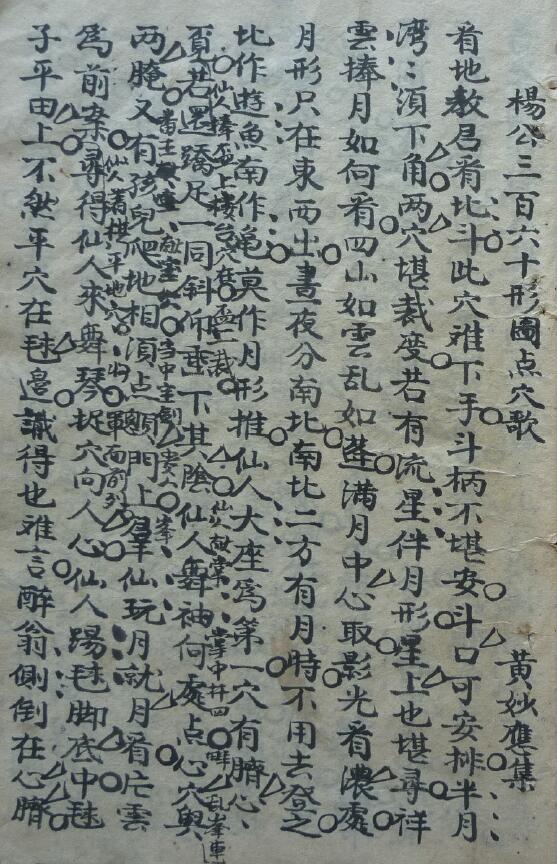 楊公三百六十形圖点穴歌 黄妙應集
看地教君看北斗此穴难下手斗柄不堪安斗口可安排半月
湾〻須下角两穴堪裁度若有流星伴月形星上也堪尋祥
雲捧月如何看四山如雲乱如蓬滿月中心取影光看濃處
月形只在東西出晝夜分南北南北二方有月時不用去登之
北作遊魚南作龟莫作月形推仙人大座爲第一穴有臍心
仙人捧盃上楼台穴在盃上裁 仙人 掌 掌中 四 乱峯
覓若還蹺足一同斜仰垂下其陰仙人舞袖何處点心穴與
番王 当中 貴人 峯
两腌又有孩兒爬地相須点顖門上羣仙玩月就月看片雲
仙人 棋平地穴 軍面前列
爲前案尋得仙人來舞琴捉穴向人心仙人踢毬脚底中毬
子平田上不然平穴在毬邉識得也难言醉翁側倒在心臍